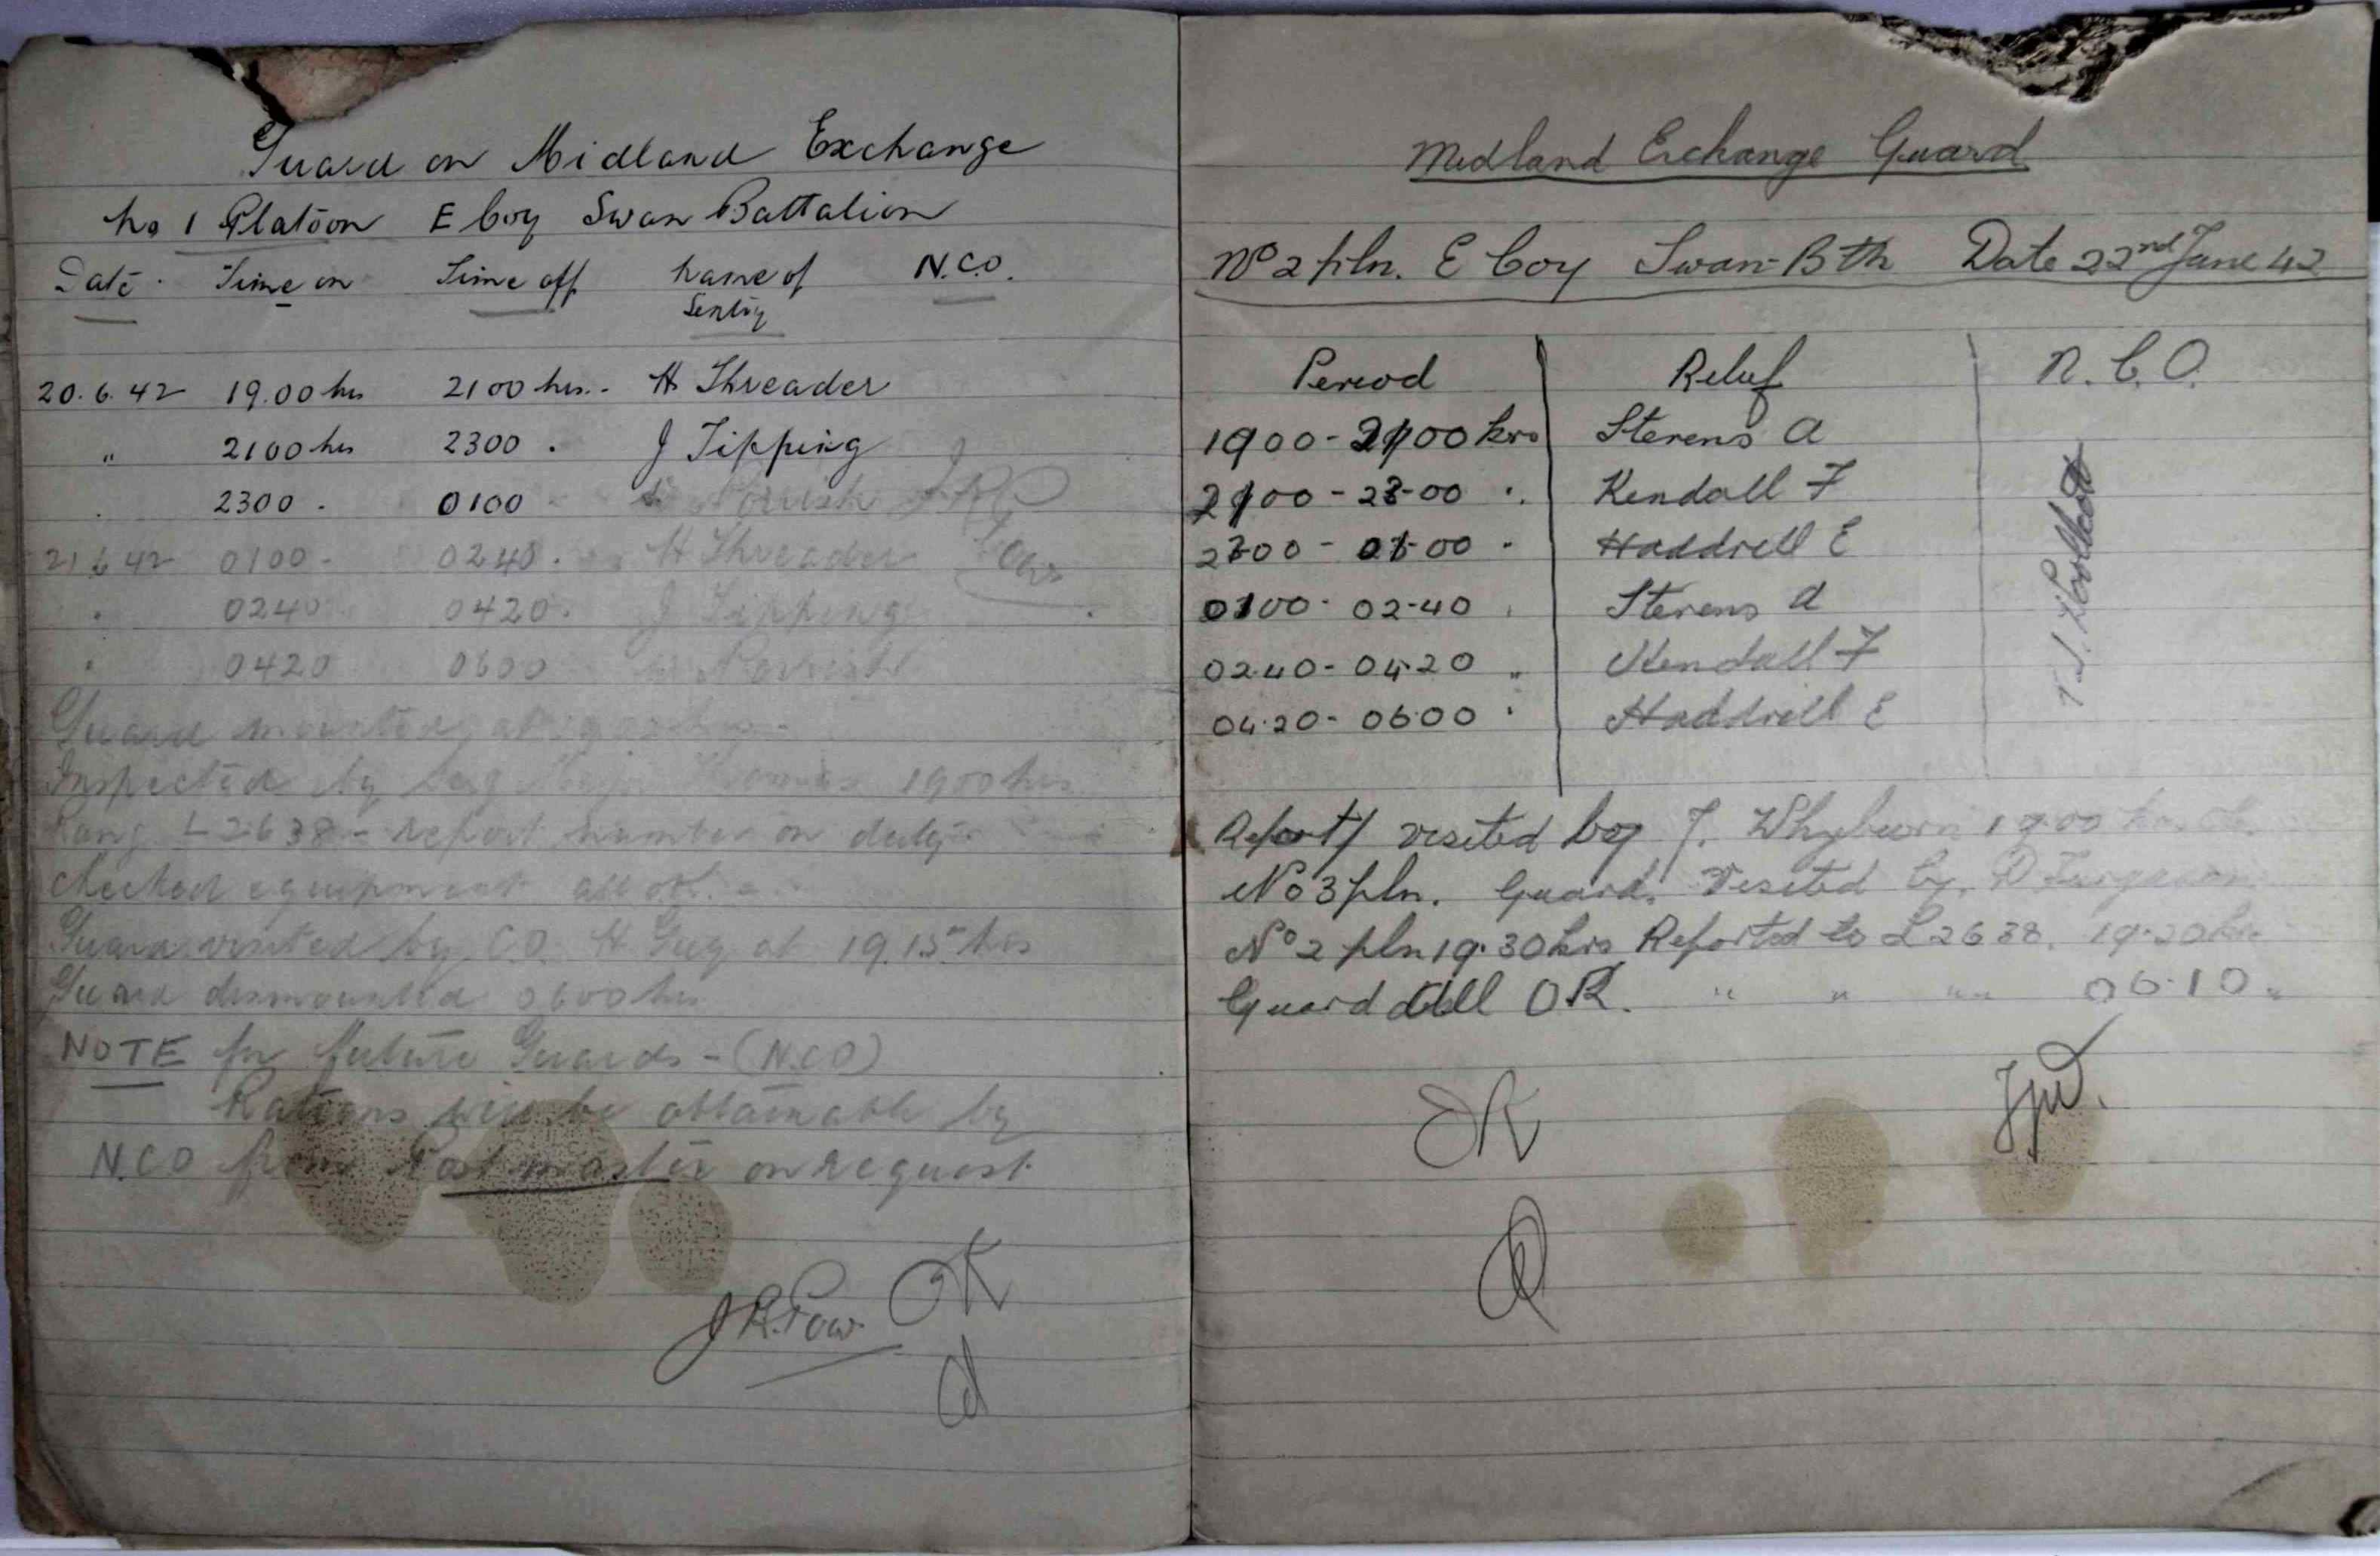 Guard on Midland Exchange
No 1 Platoon E Coy Swan Battalion
Date Time on Time off Name of N.C.O.
Sentry
20.6.42 19.00 hrs 2100 hrs. H Threader
" 2100 hrs 2300 . J Tipping
. 2300 . 0100 Norrish J.R.P
21.6.42 0100 . 0240 . H Threader Pow
. 0240 0420 . J Tipping
. 0420 0600 Norrish
Guard mounted at
Inspected by Sergt Major Thomas 1900 hrs
Rang L2638 - report number on duty
Checked equipment all OK. -
Guard visited by C.O. H Guy at 19.15 hrs
Guard dismounted 0600 hrs
NOTE for future Guards - (N.C.O)
Rations will be obtainable by
N.C.O from Postmaster on request
J R. Pow. OK
Midland Exchange Guard
No 2 pln. E Coy Swan Bth Date 22nd June 42
Period Relief N.C.O.
1900 - 2100 hrs Stevens A
2100 - 23-00 " Kendall F
2300 - 01-00 " Haddrell E
0100 - 02-40 " Stevens A
02.40 - 04.20 " Kendall F
04.20 - 06.00 " Haddrell E
Report/ visited by J. Whyburn 19.00 hrs
No 3 pln. Guard. Visited by D Furguson
No 2 pln 19.30 hrs Reported to L2638. 19.20 hrs
Guard all OK. " " " 06.10 "
OK